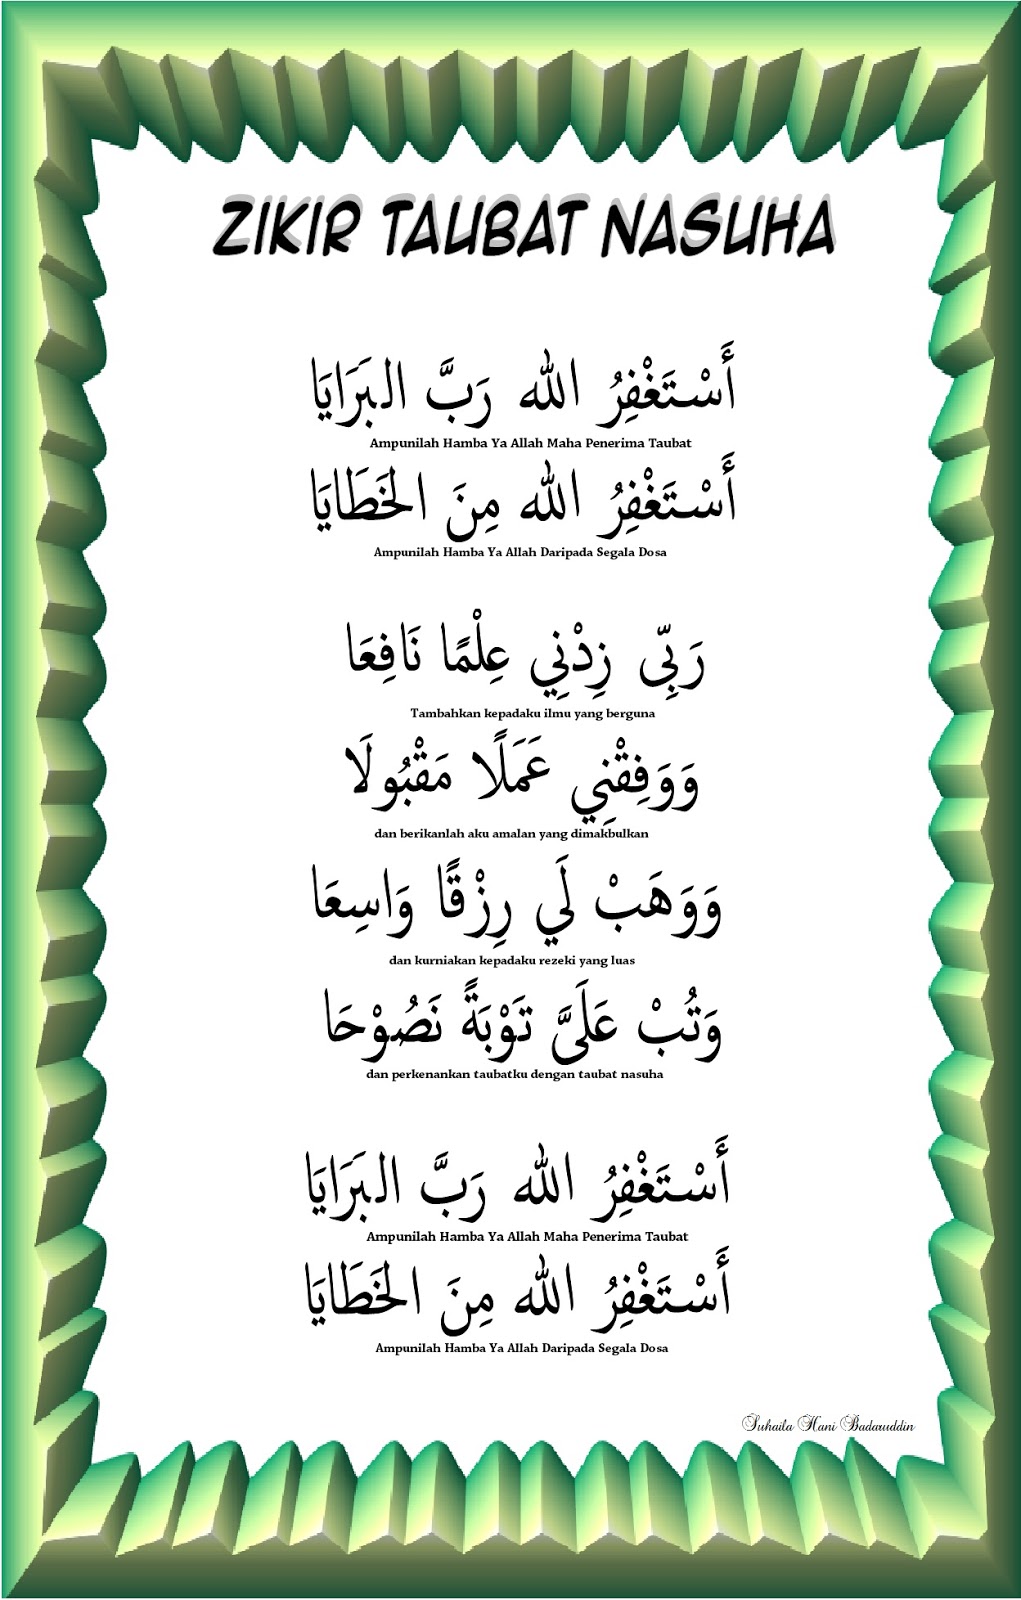 ZIKIR TAUBAT NASUHA
أَسْتَغْفِرُ الله رَبَّ البَرَايَا
Ampunilah Hamba Ya Allah Maha Penerima Taubat
أَسْتَغْفِرُ الله مِنَ الخَطَايَا
Ampunilah Hamba Ya Allah Daripada Segala Dosa
رَبِّى زِدْنِي عِلْمًا نَافِعَا
Tambahkan kepadaku ilmu yang berguna
وَوَفِقْنِي عَمَلًا مَقْبُولَا
dan berikanlah aku amalan yang dimakbulkan
وَوَهَبْ لَي رِزْقًا وَاسِعَا
dan kurniakan kepadaku rezeki yang luas
وَتُبْ عَلَىَّ تَوْبَةً نَصُوْحَا
dan perkenankan taubatku dengan taubat nasuha
أَسْتَغْفِرُ الله رَبَّ البَرَايَا
Ampunilah Hamba Ya Allah Maha Penerima Taubat
أَسْتَغْفِرُ الله مِنَ الخَطَايَا
Ampunilah Hamba Ya Allah Daripada Segala Dosa
Suhaila Hani Badaruddin